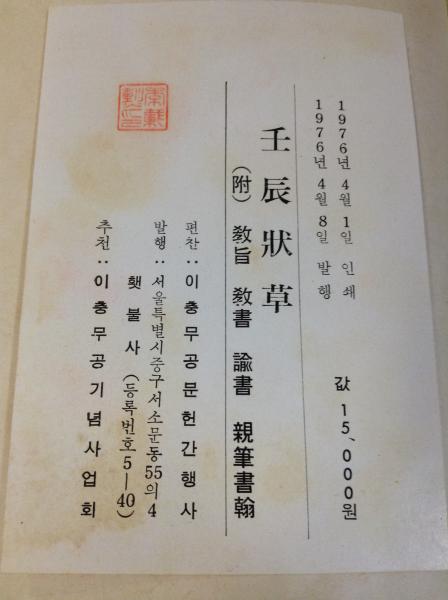 1976년 4월 1일 인쇄
1976년 4월 8일 발행
값 15,000원
壬辰狀草
(附) 敎旨 敎書 諭書 親筆書翰
편찬 : 이충무공문헌간행사
발행 : 서울특별시중구서소문동55의4
횃불사 (등록번호5—40)
추천 : 이충무공기념사업회